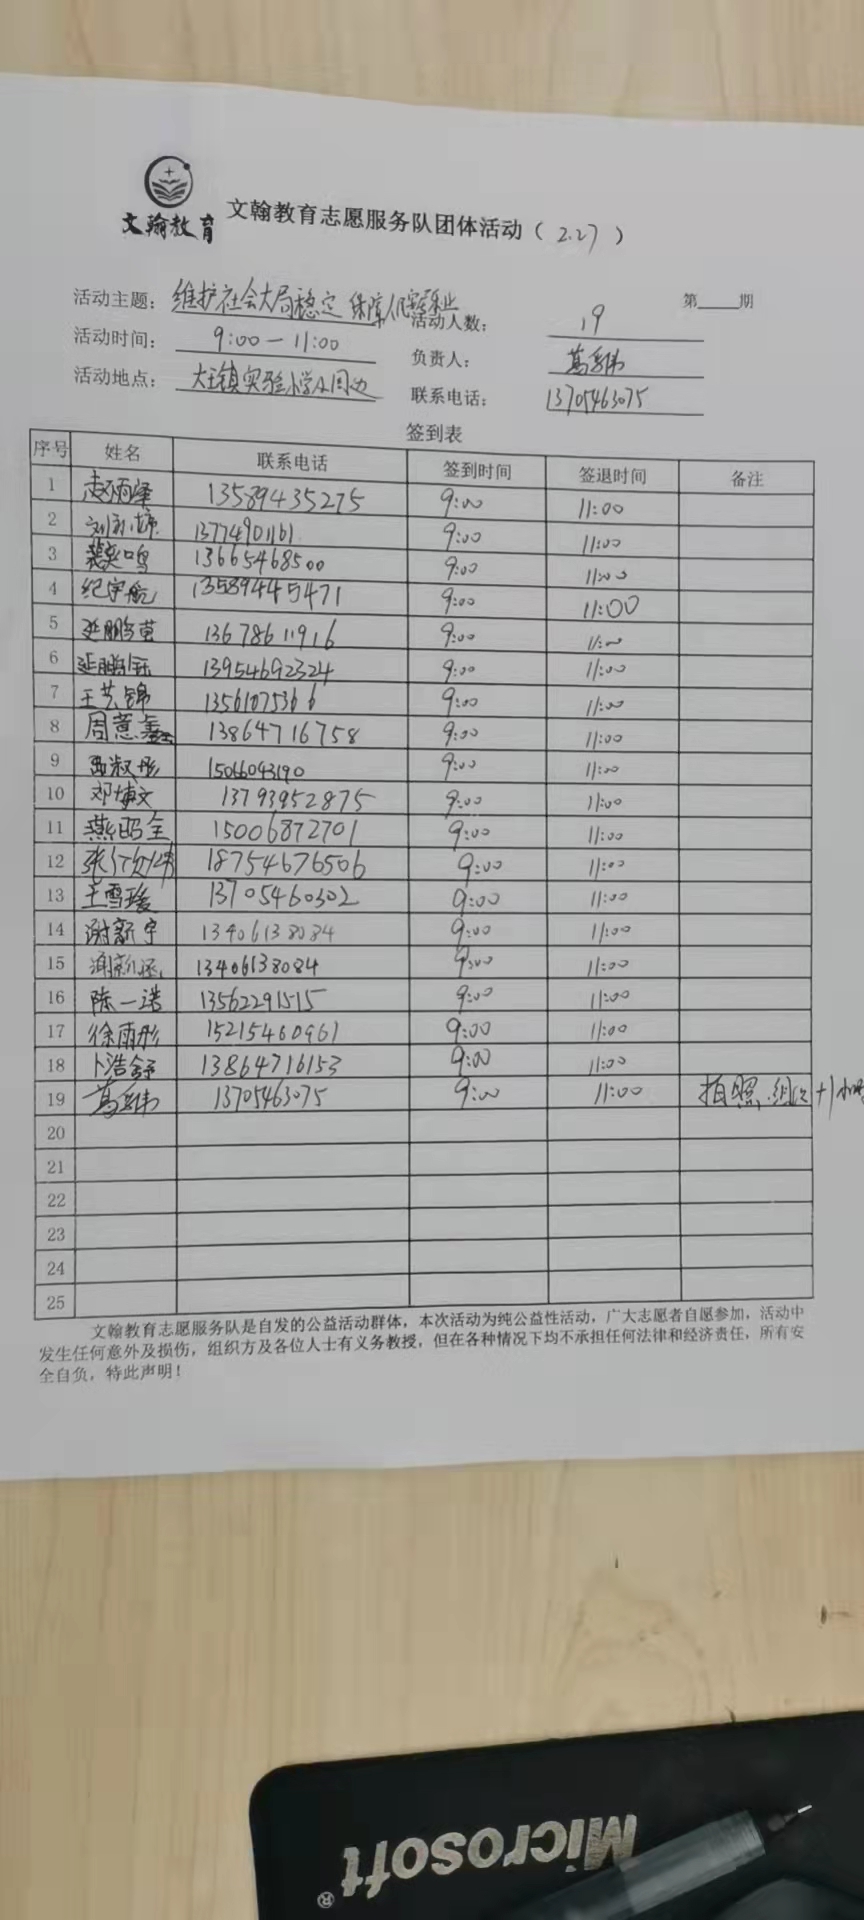 文翰教育
文翰教育志愿服务队团体活动（2.27）
第____期
活动主题： 维护社会大局稳定 保障人民安居乐业
活动人数： 19
活动时间： 9:00—11:00
负责人： 葛
活动地点： 大王镇实验小学及周边
联系电话： 13705463075
签到表
序号 姓名 联系电话 签到时间 签退时间 备注
1 赵雨泽 13589435275 9:00 11:00
2 刘 13774901161 9:00 11:00
3 裴奕鸣 13665468500 9:00 11:00
4 纪宇航 13589445471 9:00 11:00
5 延鹏萱 13678611916 9:00 11:00
6 延鹏钰 13954692324 9:00 11:00
7 王艺锦 13561075366 9:00 11:00
8 周薏鑫 13864716758 9:00 11:00
9 淑彤 15066043190 9:00 11:00
10 邓博文 13793952875 9:00 11:00
11 燕昭全 15006872701 9:00 11:00
12 张 18754676506 9:00 11:00
13 王雪瑗 13705460302 9:00 11:00
14 谢新宇 13406138084 9:00 11:00
15 谢新 13406138084 9:00 11:00
16 陈一诺 13562291515 9:00 11:00
17 徐雨彤 15215460961 9:00 11:00
18 卜浩舒 13864716153 9:00 11:00
19 葛 13705463075 9:00 11:00 拍照.组织+1小时
20
21
22
23
24
25
文翰教育志愿服务队是自发的公益活动群体，本次活动为纯公益性活动，广大志愿者自愿参加，活动中
发生任何意外及损伤，组织方及各位人士有义务教授，但在各种情况下均不承担任何法律和经济责任，所有安
全自负，特此声明！
Microsoft®